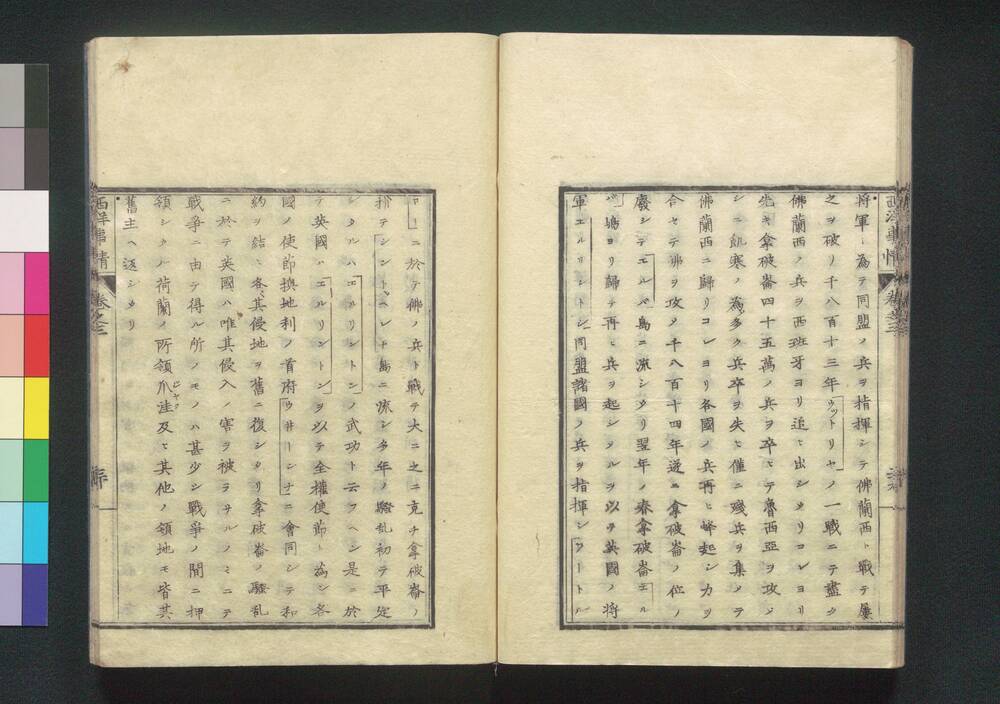 将軍ト為テ同盟ノ兵ヲ指揮シテ佛蘭西ト戰テ屡
之ヲ破リ千八百十三年ウットリヤノ一戰ニテ盡ク
佛蘭西ノ兵ヲ西班牙ヨリ追ヒ出シタリコレヨリ
先キ拿破崙四十五萬ノ兵ヲ卒ヒテ魯西亞ヲ攻メ
シニ飢寒ノ為メ多ク兵卒ヲ失ヒ僅ニ殘兵ヲ集メテ
佛蘭西ニ歸リコレヨリ各國ノ兵再ヒ蜂起シ力ヲ
合セテ佛ヲ攻メ千八百十四年遂ニ拿破崙ノ位ヲ
廢シテエルバ島ニ流シタリ翌年ノ春拿破崙エル
バ嶋ヨリ歸テ再ヒ兵ヲ起シシヲ以テ英國ノ將
軍エルリントン同盟諸國ノ兵ヲ指揮シワートル
ロ―ニ於テ佛ノ兵ト戰テ大ニ之ニ克チ拿破崙ヲ
擒テシントヘレナ島ニ流シ多年ノ騷乱初テ平定
シタルハエルリントンノ武功ト云フヘシ是ニ於
テ英國ハエルリントンヲ以テ全權使節ト為シ各
國ノ使節換地利ノ首府ウ井ーンナニ會同シテ和
約ヲ結ヒ各其侵地ヲ舊ニ復シタリ拿破崙ノ騷乱
ニ於テ英國ハ唯其侵入ノ害ヲ被ラサルノミニテ
戰爭ニ由テ得ル所ノモノハ甚少シ戰爭ノ間ニ押
領シタル荷蘭ノ所領爪哇及ヒ其他ノ領地モ皆其
舊主ヘ返シタリ
西洋事情
卷之三